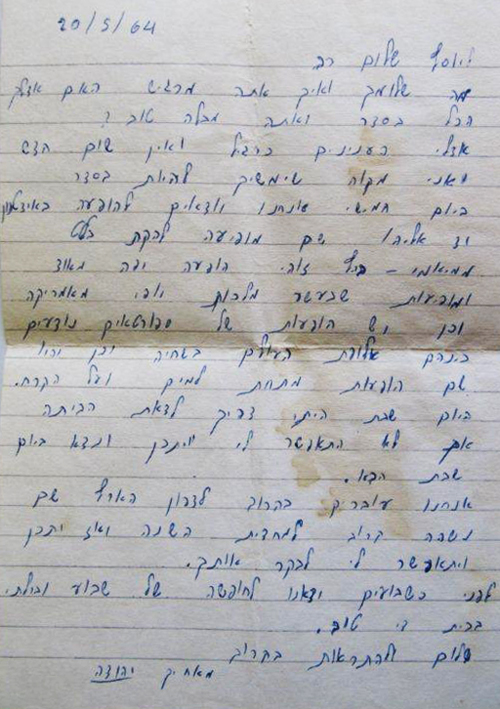 20/5/64
ליוסף שלום רב
מה שלומך ואיך אתה מרגיש האם אצלך
הכל בסדר ואתה מבלה טוב?
אצלי הענינים כרגיל ואין שום חדש
ואני מקוה שימשיך להיות בסדר
ביום חמישי שעבר יוצאים להופעה באיצטדיון
יד אליהו שם מופיעה להקת בלט
ממיאמי – ביץ זוהי הופעה יפה מאוד
ומופיעות שבעשר מלכות יופי מאמריקה
וכן יש הופעות של ספורטאים נודעים
ביניהם אלופת העולם בשחיה וכן יהיו
שם הופעות מתחת למים ועל הקרח.
ביום שבת הייתי צריך לצאת הביתה
אך לא התאפשר לי ויתכן ונצא ביום
שבת הבא.
אנחנו עוברים בקרוב לדרון הארץ שם
נשהה קרוב למחצית השנה ואז יתכן
ויתאפשר לי לבקר אותך.
לפני כשבועים יצאנו לחופשה של שבוע ובילתי
בבית די טוב.
שלום ולהתראות בקרוב
מאחיך יהודה